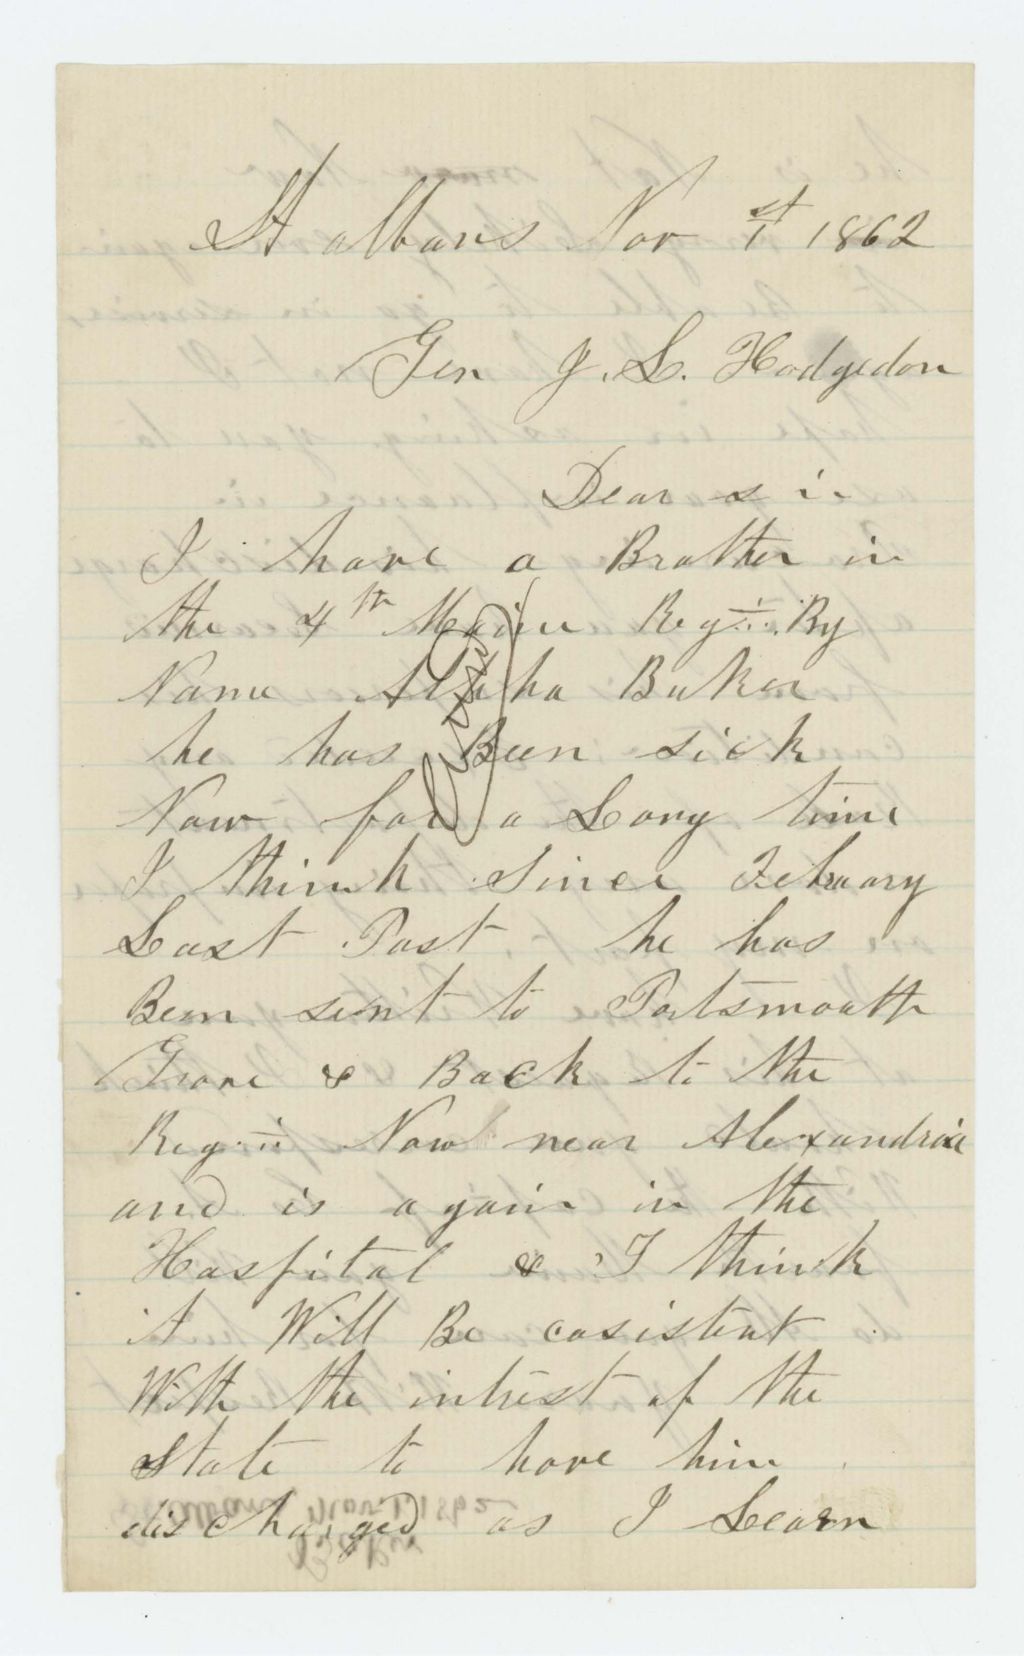 St albans Nov 1st 1862
Gen J. L. Hodgedon
Dear sir
I have a Brother in
the 4th Maine Reg.. By
Name Alpha Baker
he has Been sick
Now for a Long time
I think since February
Last Past he has
Been sent to Portsmouth
Grove & Back to the
Reg.. Now near Alexandria
and is again in the
Hospital & I think
it Will Be cosistent
With the intrest of the
State to have him
discharged as I Learn